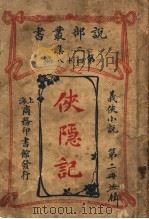 說部叢書
義俠小說 第二冊
俠隱記
上海商務印書館發行